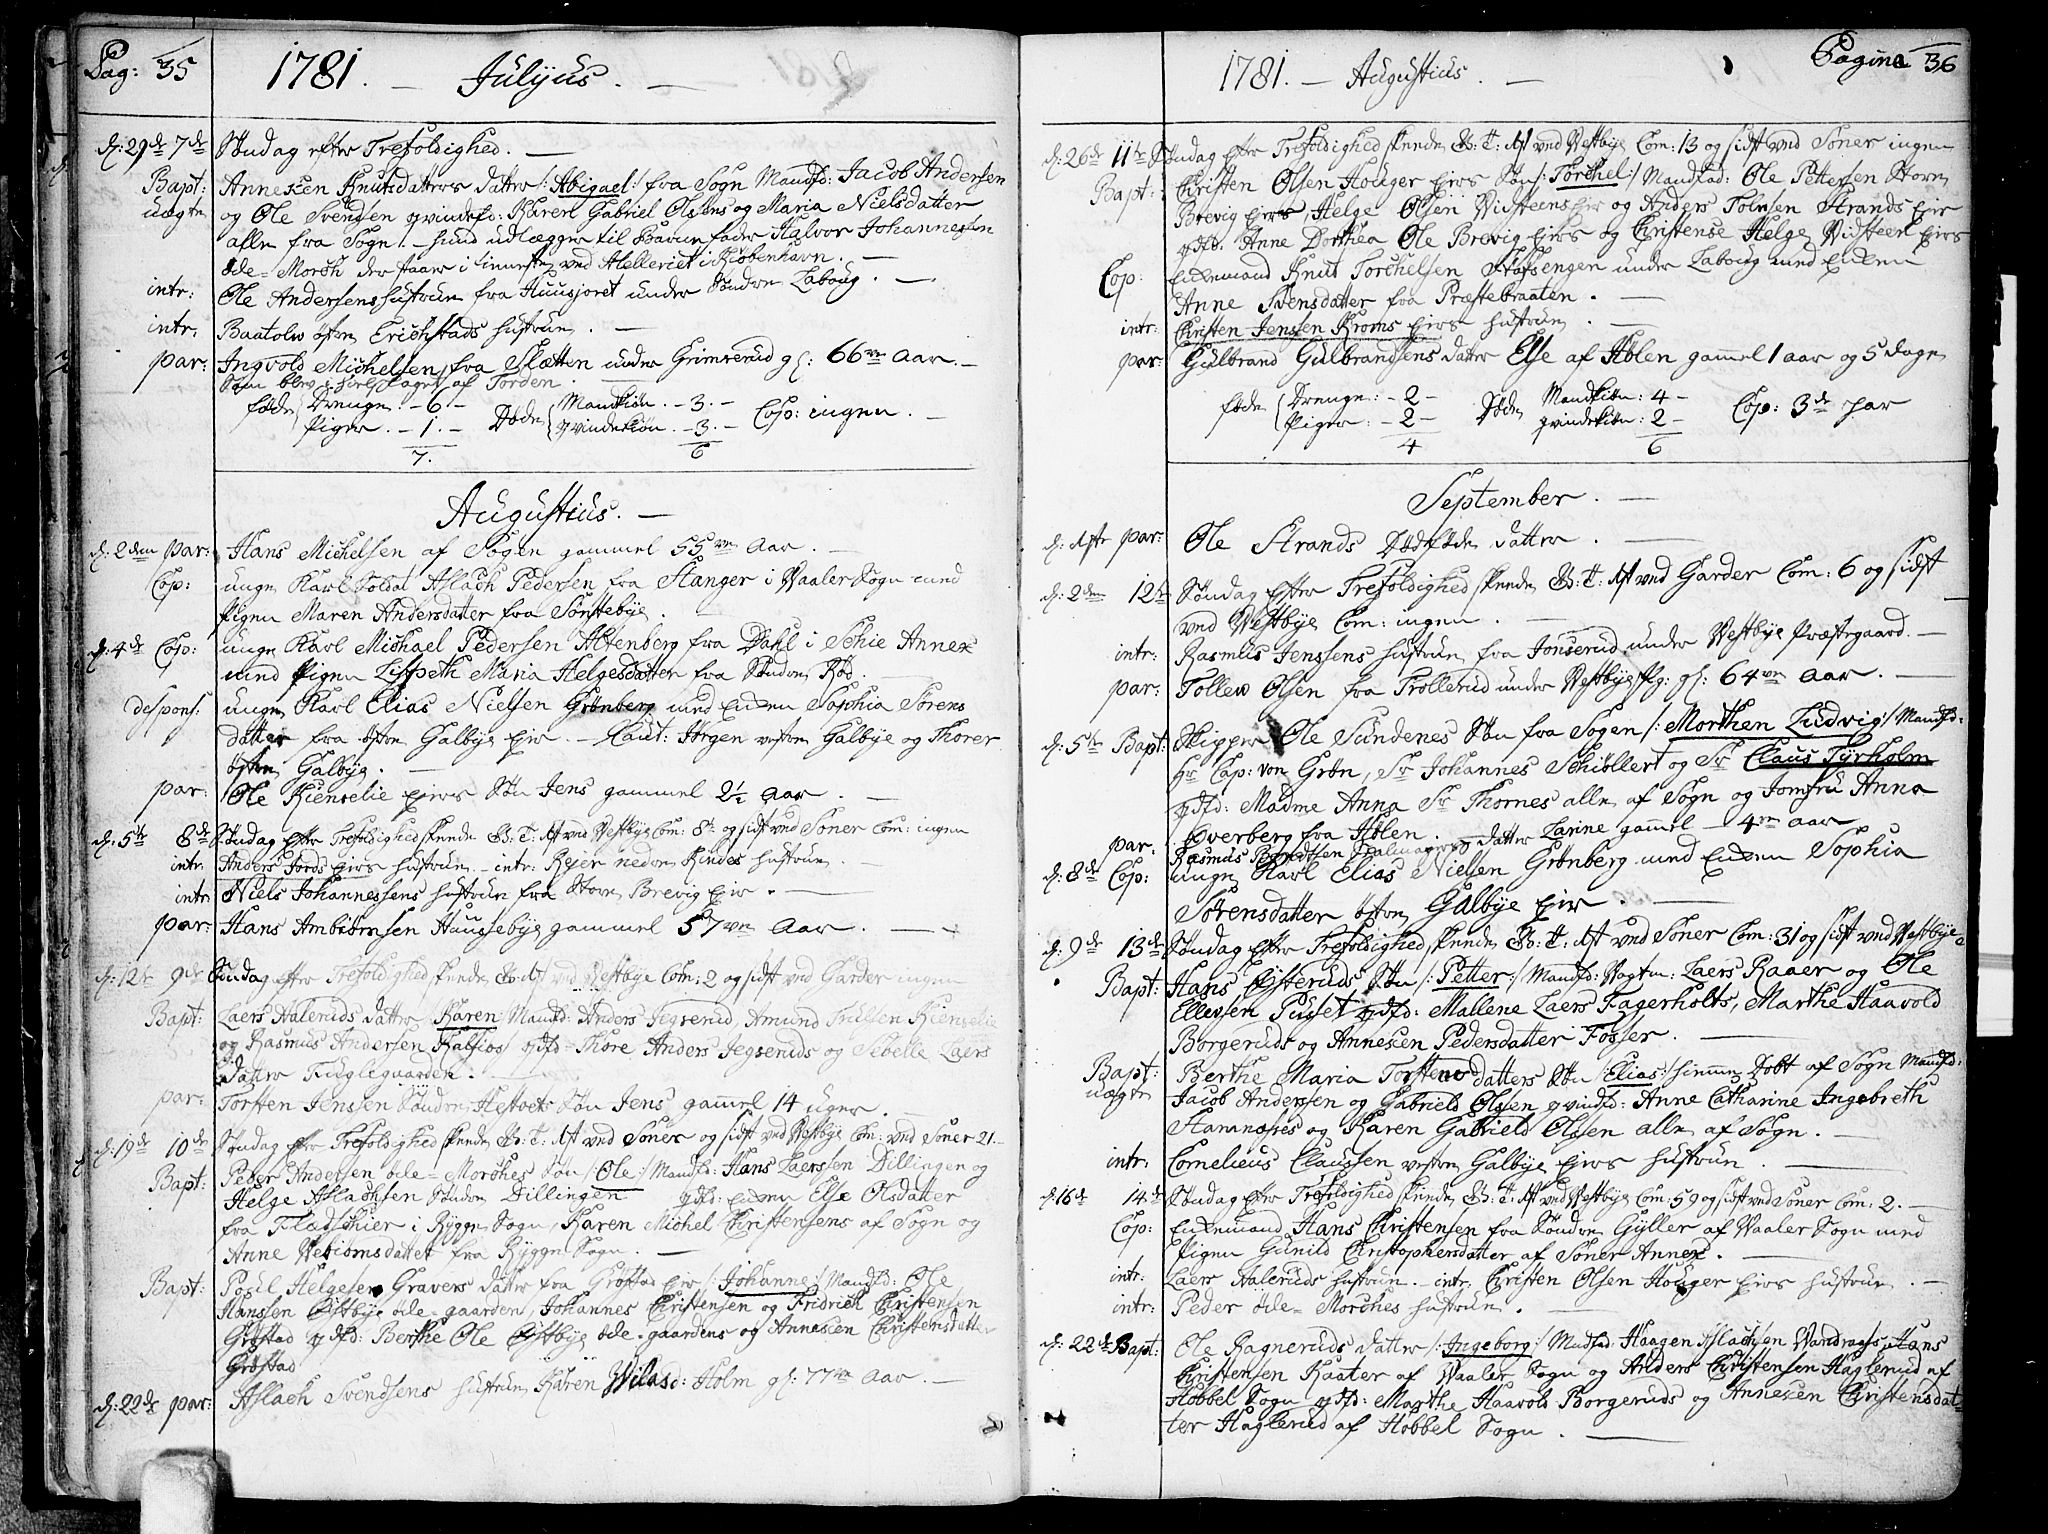 Pag: 35
1781. — Julyus. —
d: 29de 7de Søndag efter Trefoldighed. —
Bapt: Annesken Knutsdatters datter /: Abigael :/ fra Sogn Mandfd: Jacob Andersen
uægte og Ole Svendsen qvindefd: Karen Gabriel Olsens og Maria Nielsdatter
alle fra Sogn. — hund udlægger til Barne fader Halvor Johannesen
øde-Morch der staar i tienneste ved Artelleriet i Kiøbenhavn. —
intr: Ole Andersens hustrue fra Huusjoret under Søndre Laboug. —
intr: Baatolv østre Erichstads hustrue. —
par: Ingvold Michelsen fra Skætten under Grimserud gl: 66ve Aar. —
Som blev ihielslaget af Torden.
føde Drenge: — 6. — Døde Mandkiøn. — 3. — Cop: ingen. —
Piger. — 1. — qvindekiøn. — 3. —
7. 6
Augustius. —
d: 2den par: Hans Michelsen af Sogen gammel 55ve Aar. —
Cop: unge Karl Soldat Aslach Pedersen fra Stanger i Vaaler Sogn med
Pigen Maren Andersdatter fra Sørstebye.
d: 4de Cop: unge Karl Michael Pedersen Altenberg fra Dahl i Schie Annex
med Pigen Lispeth Maria Helgesdatter fra Søndre Rød.
despons: unge Karl Elias Nielsen Grønberg med Enken Sophia Sørens
datter fra østre Galbye Eie. — Caut: Jørgen vestre Galbye og Thorer
østre Galbye. —
par: Ole Kienselie Eiers Søn Jens gammel 2½ Aar. —
d: 5te 8de Søndag efter Trefoldighed skeede G: T: Aft ved Vestbye Com: 8te og sidst ved Soner Com: ingen
intr: Anders Fords Eiers hustrue — intr: Rejer nedre Kindes hustrue. —
intr: Niels Johannessens hustrue fra Store Brevig Eie. —
par: Hans Ambiørnsen Haussebye gammel 57ve Aar. —
d: 12te 9de Søndag efter Trefoldighed skeede G: Aft ved Vestbye Com: 2 og sidst ved Garder ingen
Bapt: Laers Haleruds datter Karen Mandfd: Anders Jegserud, Amund Trulsen Kienselie
og Rasmus Andersen Kalsios qdfd: Thore Anders Jegseruds og Sebelle Laers
datter Fuglegaarden. —
par: Torsten Jenssen Søndre Hestvets Søn Jens gammel 14 uger. —
d: 19de 10de Søndag efter Trefoldighed skeede G: T: Aft ved Soner og sidst ved Vestbye Com: ved Soner 21.
Bapt: Peder Andersen øde-Morches Søn /: Ole :/ Mandfd: Hans Laerssen Dillingen og
Helge Aslachsen Søndre Dillingen qdfd: Enken Else Olsdatter
fra Flædschier i Rygge Sogn, Karen Michel Christensens af Sogn og
Anne Vebiørnsdatter fra Rygge Sogn. —
Bapt: Poul Helgesen Gravers datter fra Grøstad Eie /: Johanne :/ Mandfd: Ole
Hanssen Østbye øde-gaarden, Johannes Christensen og Fridrich Christensen
Grøstad qdfd: Berthe Ole Østbye øde-gaardens og Annesken Christensdatter
Grøstad
d: 22de par: Aslach Svendsens hustrue Karen Wilasd: Holm gl: 77ve Aar. —
Pagina 36
1781. — Augustius. —
d: 26de 11te Søndag efter Trefoldighed skeede G: T: Aft ved Vestbye Com: 13 og sidst ved Soner ingen
Bapt: Christen Olsen Houger Eiers Søn /: Torchel :/ Mandfd: Ole Pettersen Store
Brevig Eiers, Helge Olsen Vidsteens Eie og Anders Tolvsen Strands Eie
qdfd: Anne Dorthea Ole Brevig Eiers og Christense Helge Vidsteen Eiers
Cop: Enkemand Knut Torchelsen Stofsengen under Laboug med Enken
Anne Svensdatter fra Præstebraaten. —
intr: Christen Jenssen Kroms Eiers hustrue. —
par: Gulbrand Gulbrandsens datter Else af Hølen gammel 1 aar og 5 dage
føde Drenge: — 2 — Døde Mandkiøn: 4 — Cop: 3de par
Piger: — 2 — qvindekiøn: 2 —
4 6
September. —
d: 1ste par: Ole Strands dødføde datter. —
d: 2den 12te Søndag efter Trefoldighed skeede G: T: Aft ved Garder Com: 6 og sidst
ved Vestbye Com: ingen. —
intr: Rasmus Jenssens hustrue fra Jonserud under Vestbye Præstegaard. —
par: Tollev Olsen fra Trollerud under Vestbye Pg: gl: 64ve Aar. —
d: 5te Bapt: Skipper Ole Sundenes Søn fra Sogen /: Morthen Ludvig :/ Mandfd:
Hr Cap: von Grøn, Sr Johannes Schiøllert og Sr Claus Tyrholm
qdfd: Madme Anna Sr Thornes alle af Sogn og Jomfru Anna
Overberg fra Hølen. —
par: Rasmus Berndtsen datter Larine gammel — 4re Aar
d: 8de Cop: unge Karl Elias Nielsen Grønberg med Enken Sophia
Sørensdatter østre Galbye Eie. —
d: 9de 13de Søndag efter Trefoldighed skeede G: T: Aft ved Soner Com: 31 og sidst ved Vestbye
Bapt: Hans Østeruds Søn /: Petter :/ Mandfd: Vogtm: Laers Raaer og Ole
Ellevsen Pusset qdfd: Mallene Laers Fagerholts, Marthe Haavold
Borgeruds og Annesken Pedersdatter Fosser. —
Bapt: Berthe Maria Torstensdatters Søn /: Elias :/ hiemme Døbt af Sogn Mandfd:
uægte Jacob Anderssen og Gabrield Olssen qvindfd: Anne Catharine Ingebreth
Hannæses og Karen Gabrield Olssen alle af Sogn. —
intr: Cornelieus Claussen vestre Galbye Eiers hustrue. —
d: 16de 14de Søndag efter Trefoldighed skeede G: T: Aft ved Vestbye Com: 59 og sidst ved Soner Com: 2. —
Cop: Enkemand Hans Christensen fra Søndre Gyller af Vaaler Sogn med
Pigen Gunild Christophersdatter af Soner Annex. —
intr: Laers Haleruds hustrue. — intr: Christen Olsen Houger Eiers hustrue. —
intr: Peder øde-Morches hustrue. —
d: 22de Bapt: Ole Ragneruds datter /: Ingeborg :/ Mandfd: Haagen Aslachsen Vandrags, Hans
Christensen Kaater af Vaaler Sogn og Anders Christensen Haglerud af
Hobbel Sogn qdfd: Marthe Haavold Borgeruds og Annesken Christensdat-
ter Haglerud af Hobbel Sogn. —